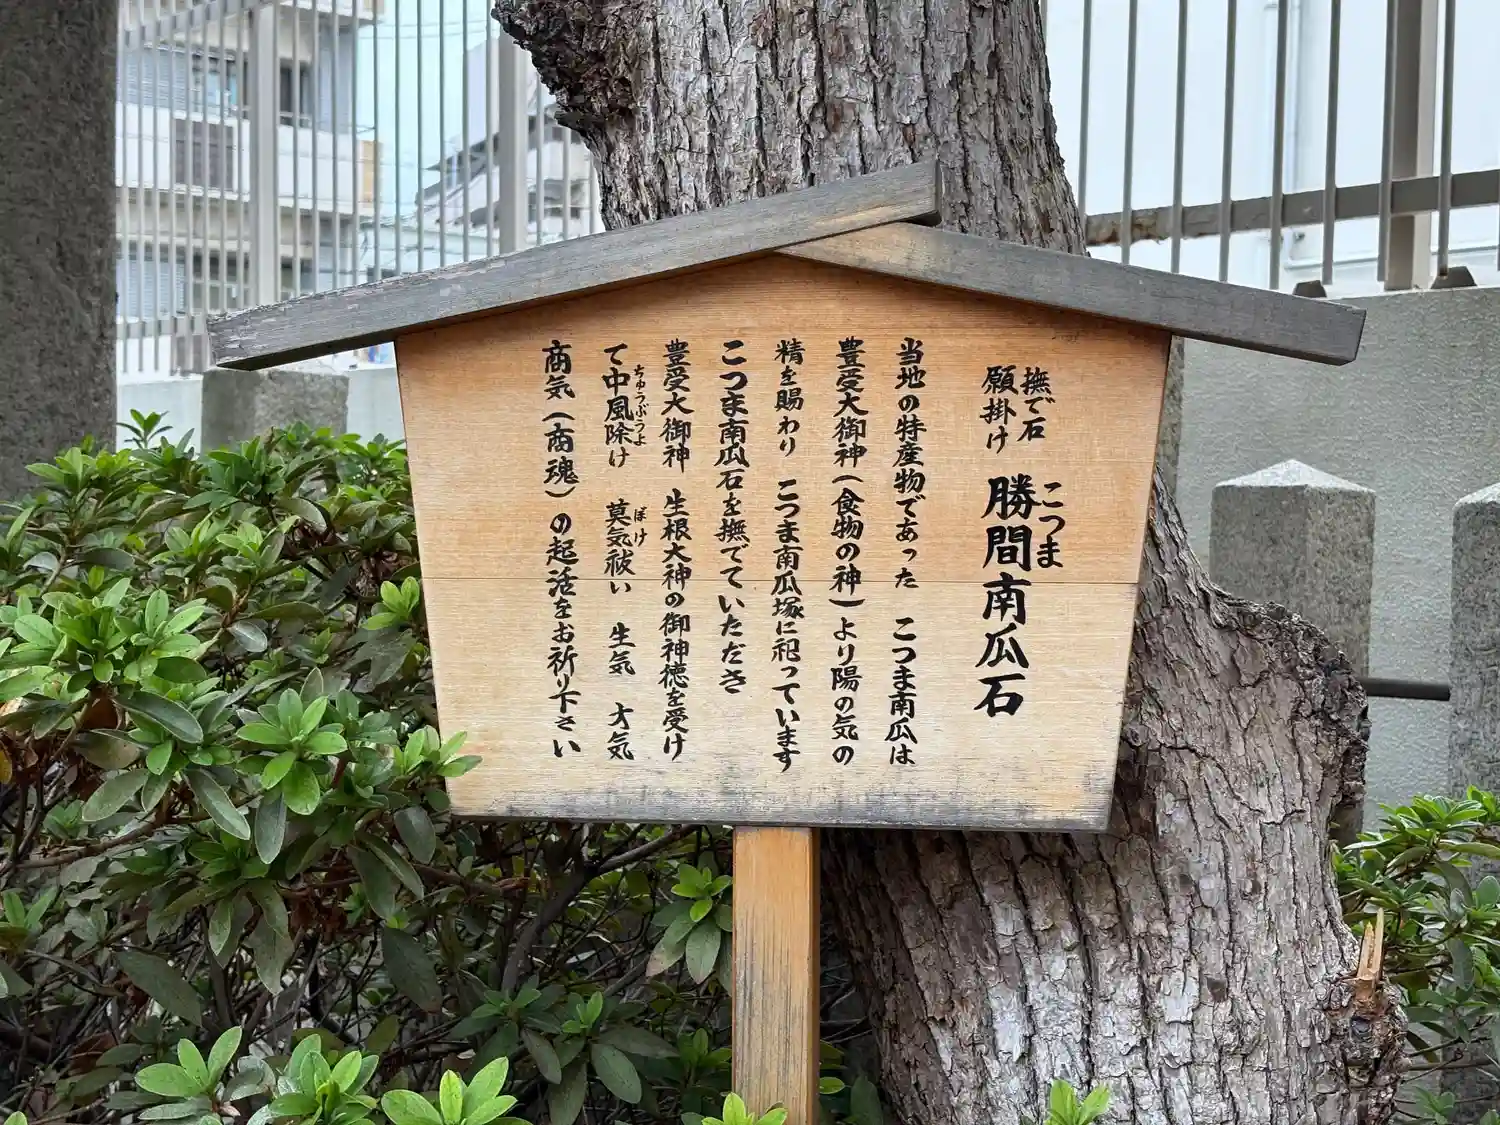 撫で石
願掛け
勝間南瓜石
こつま
当地の特産物であった　こつま南瓜は
豊受大御神(食物の神)より陽の気の
精を賜わり　こつま南瓜塚に祀っています
こつま南瓜石を撫でていただき
豊受大御神　生根大神の御神徳を受け
て中風除け　莫気祓い　生気　才気
ちゅうぶうよ　ぼけ
商気(商魂)の起活をお祈り下さい